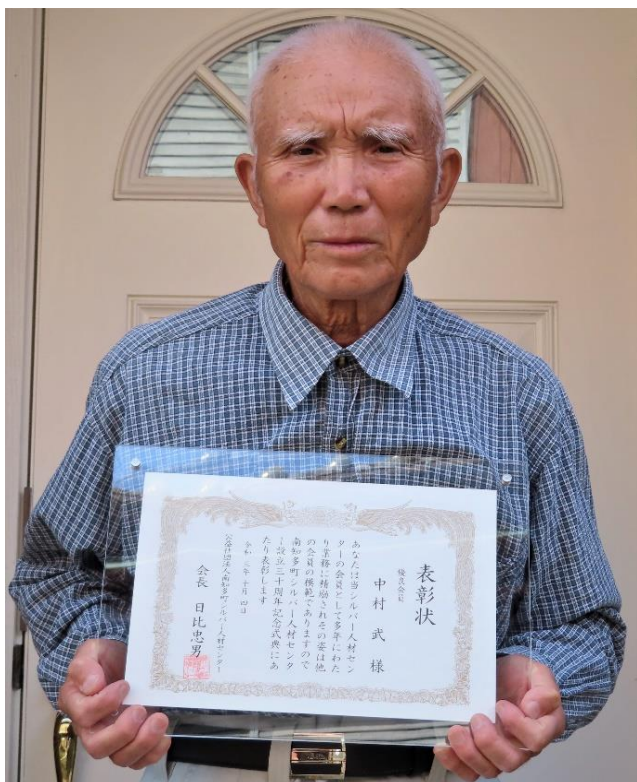 表彰状
優良会員
中村 武 様
あなたは当シルバー人材セン
ターの会員として多年にわた
り業務に精励されその姿は他
の会員の模範でありますので
南知多町シルバー人材センタ
ー設立三十周年記念式典にあ
たり表彰します
令和三年十月四日
公益社団法人南知多町シルバー人材センター
会長 日比忠男